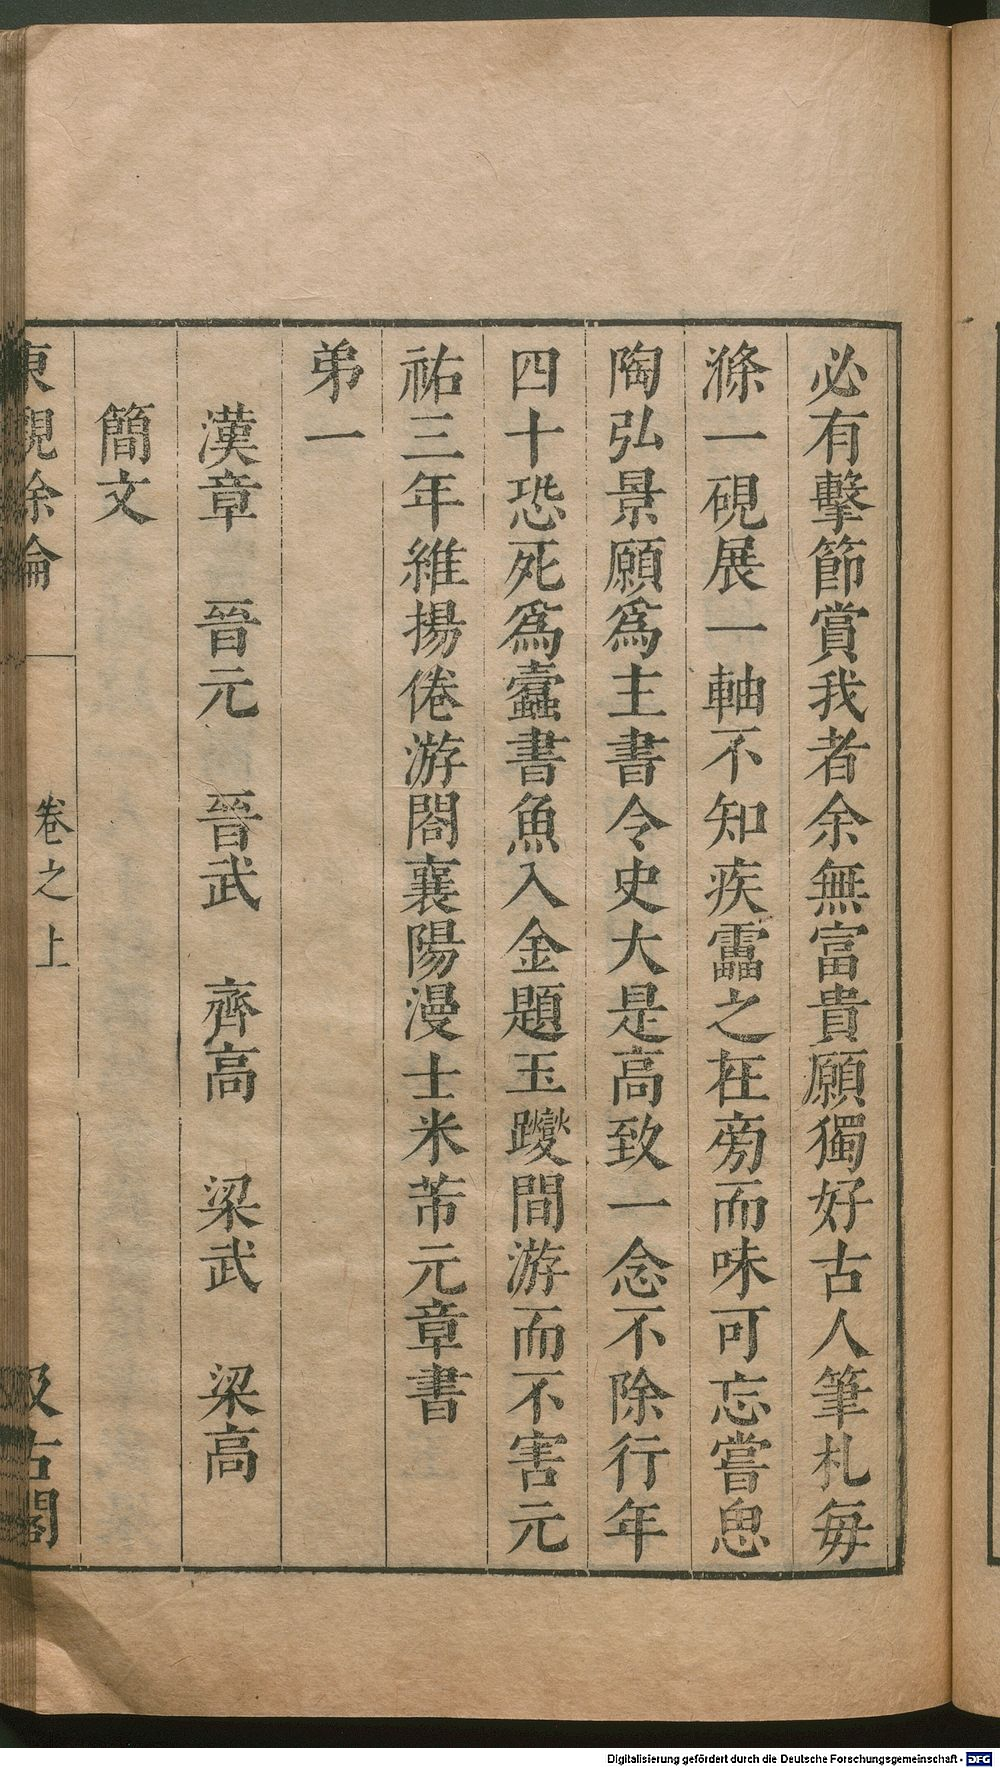 必有擊節賞我者余無富貴願獨好古人筆札每
滌一硯展一軸不知疾靁之在旁而味可忘嘗思
陶弘景願爲主書令史大是高致一念不除行年
四十恐死爲蠧書魚入金題玉躞間游而不害元
祐三年維揚倦游閣襄陽漫士米芾元章書
弟一
漢章 晉元 晉武 齊高 梁武 梁高
簡文
東觀余論 卷之上 汲古閣
Digitalisierung gefördert durch die Deutsche Forschungsgemeinschaft - DFG